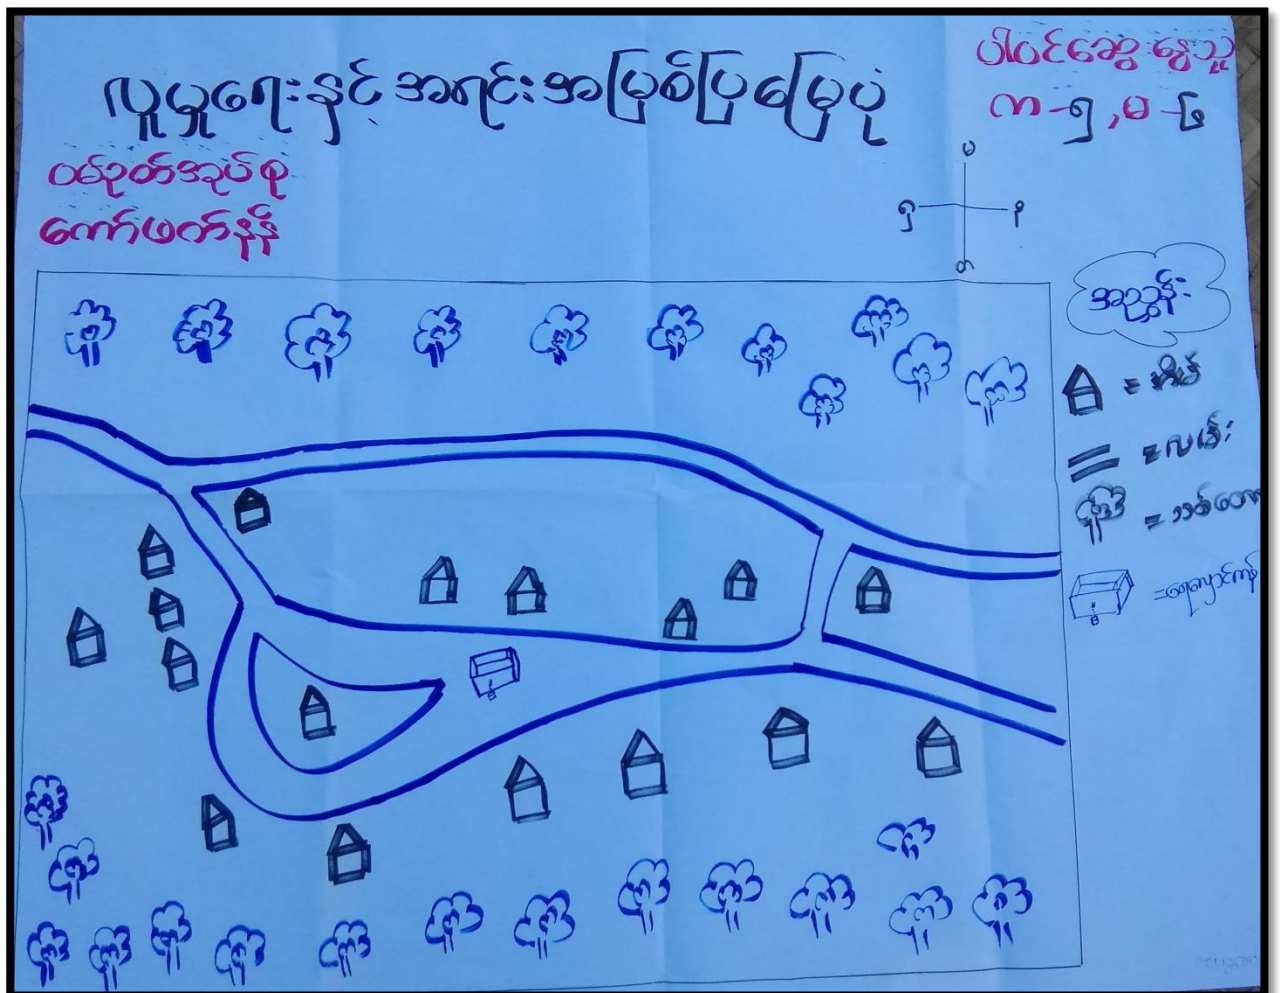 လူမှုရေးနှင့် အရင်းအမြစ်ပြမြေပုံ
ပါဝင်ဆွေးနွေးသူ
က-၅ ,မ-၆
ဝမ်ဒုတ်အုပ်စု
ကော်ဖက်နန်
မ
အညွှန်း
= အိမ်
= လမ်း
= သစ်တော